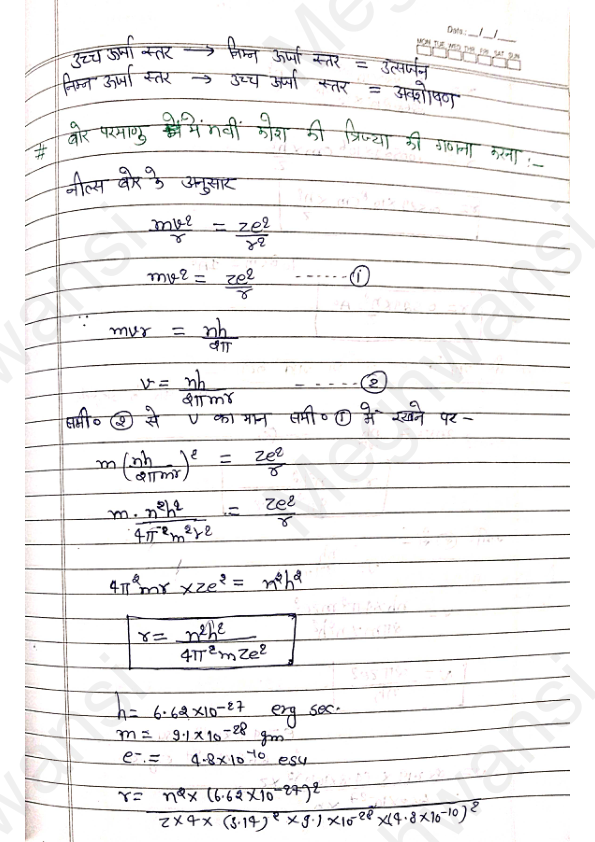 Date:__/__/__
MON TUE WED THE FRI SAT SUN
उच्च ऊर्जा स्तर → निम्न ऊर्जा स्तर = उत्सर्जन
निम्न ऊर्जा स्तर → उच्च ऊर्जा स्तर = अवशोषण
# बोर परमाणु में nवीं कोश की त्रिज्या की गणना करना :-
नील्स बोर के अनुसार
mv²/r = ze²/r²
mv² = ze²/r ------ ①
∵ mvr = nh/2π
v = nh/2πmr ----- ②
समी० ② से v का मान समी० ① में रखने पर -
m(nh/2πmr)² = ze²/r
m·n²h²/4π²m²r² = ze²/r
4π²mr × ze² = n²h²
r = n²h²/4π²mze²
h = 6.62×10⁻²⁷ erg sec.
m = 9.1×10⁻²⁸ gm
e⁻ = 4.8×10⁻¹⁰ esu
r = n²×(6.62×10⁻²⁷)²/z×4×(3.14)²×9.1×10⁻²⁸×(4.8×10⁻¹⁰)²
Meghwansi